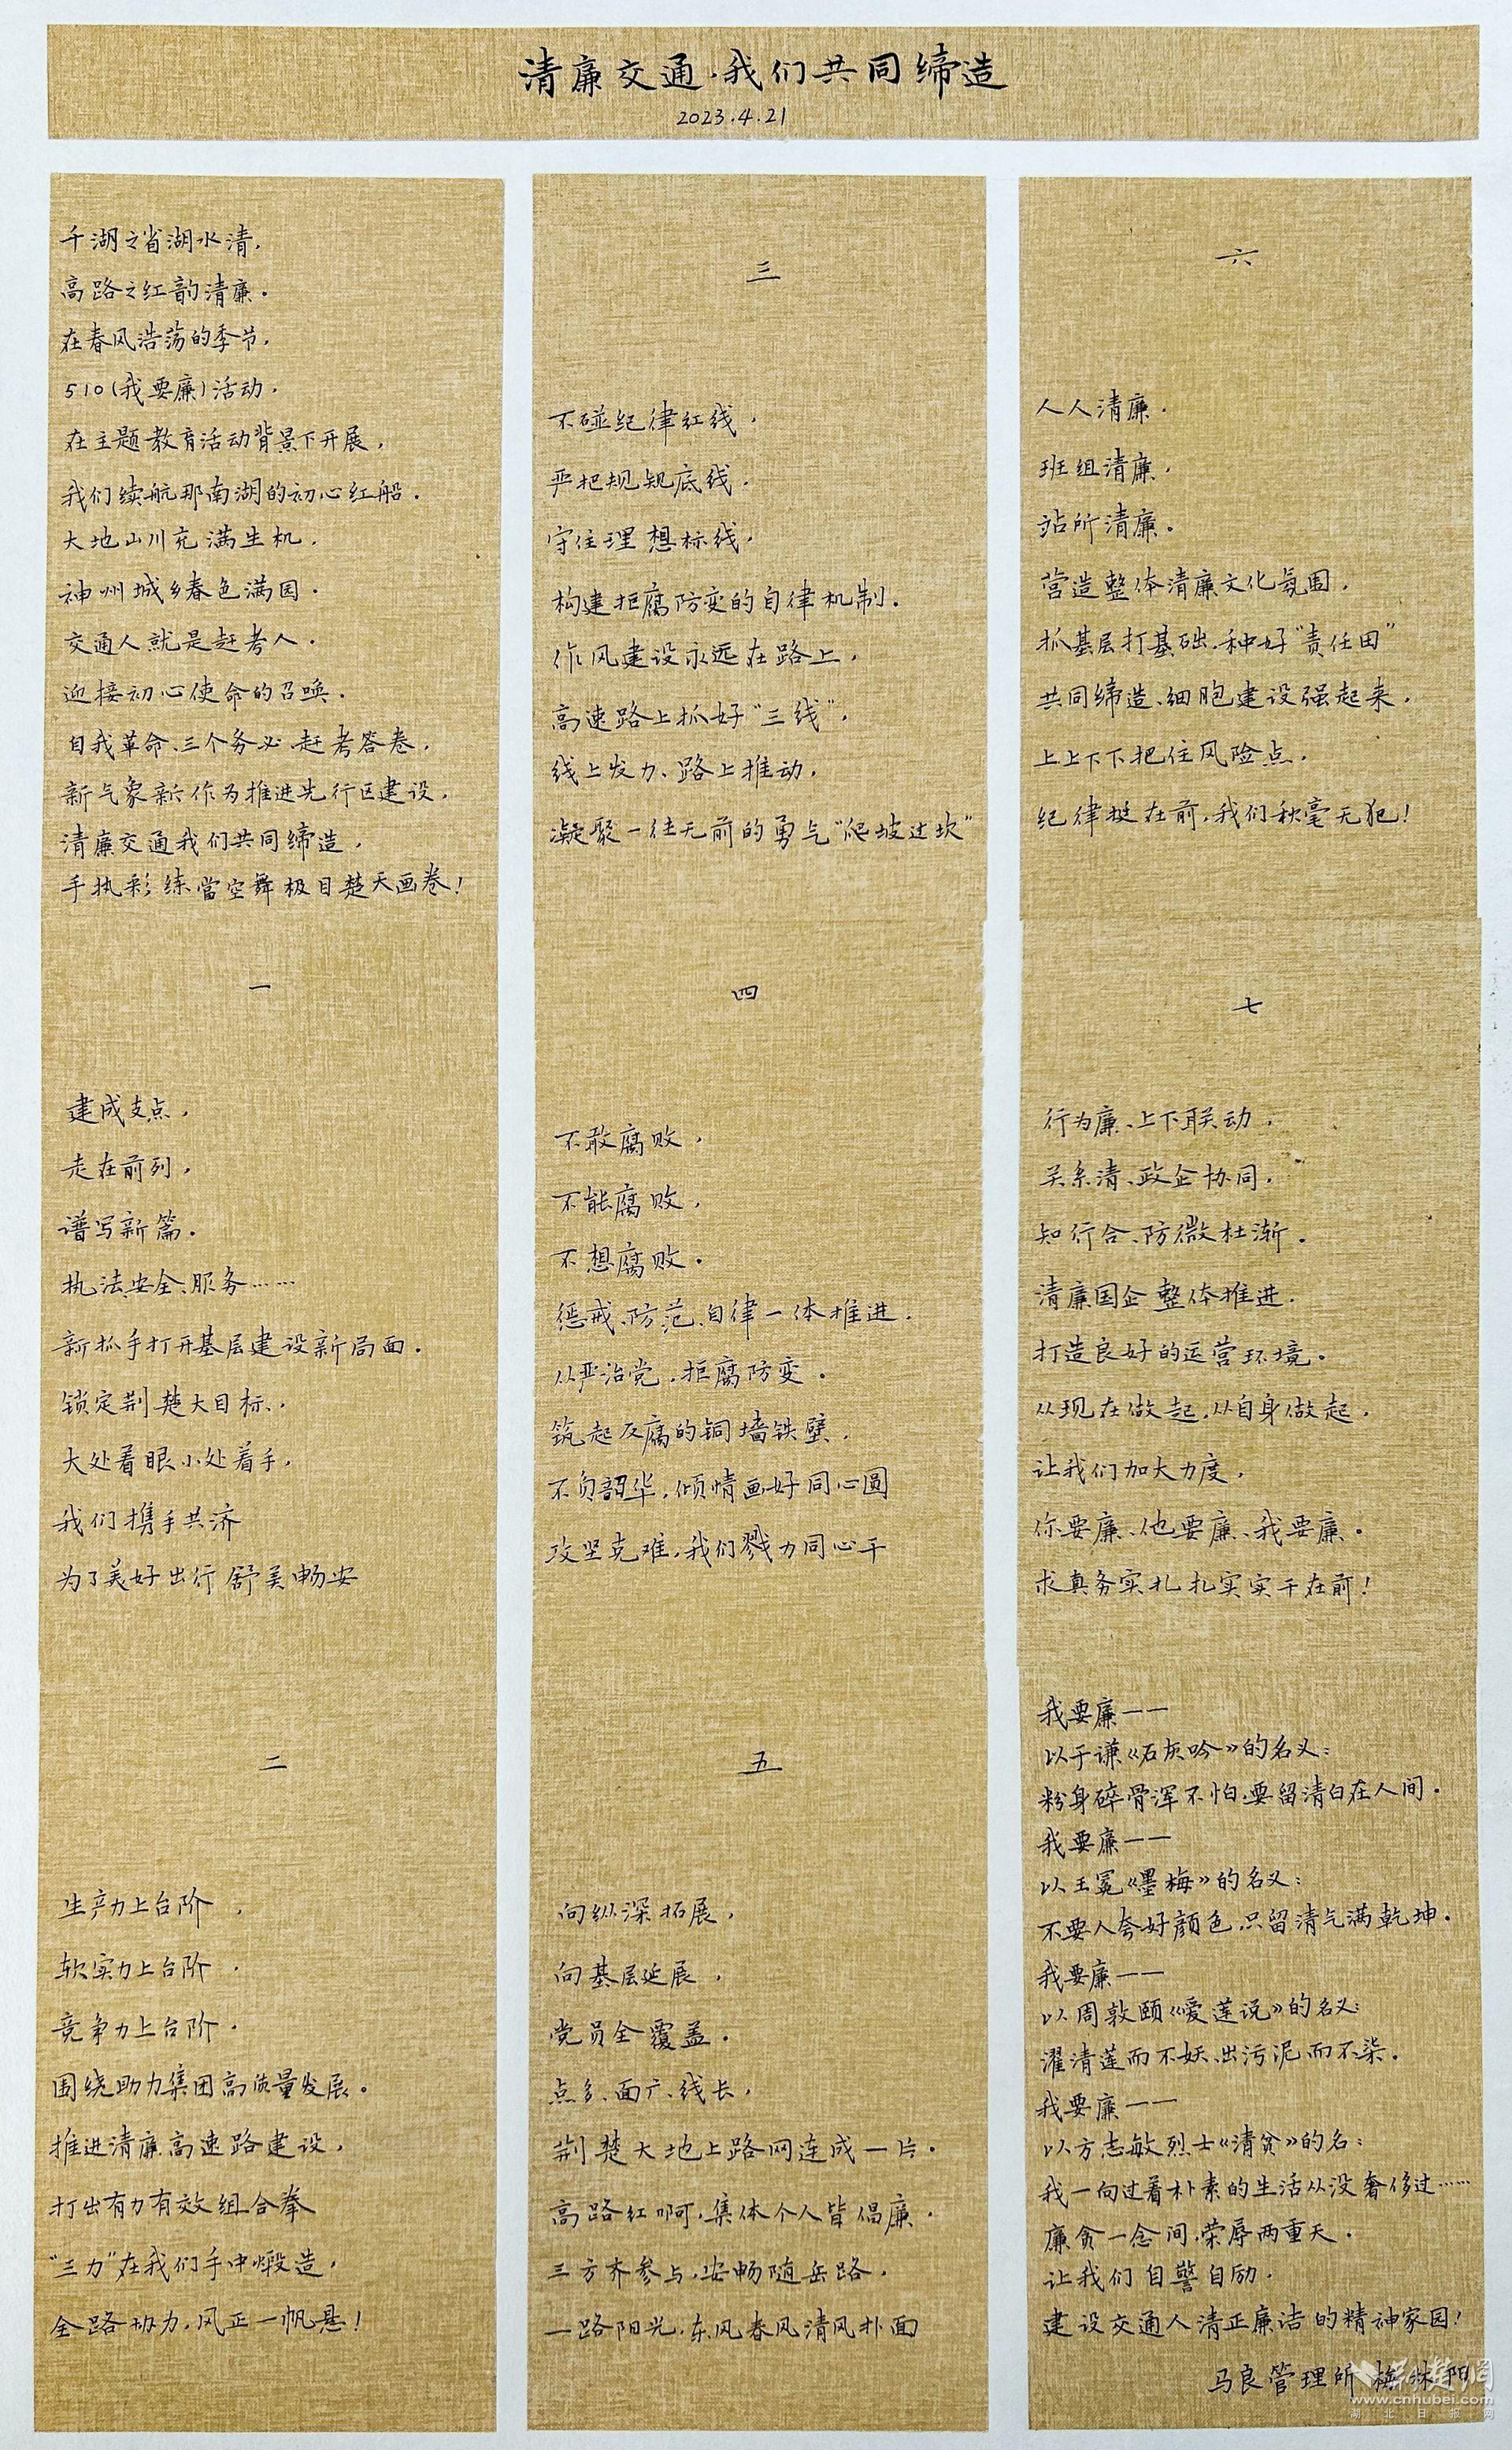 清廉交通·我们共同缔造
2023.4.21
千湖之省湖水清，
高路之红韵清廉。
在春风浩荡的季节，
510(我要廉)活动，
在主题教育活动背景下开展，
我们续航那南湖的初心红船。
大地山川充满生机，
神州城乡春色满园。
交通人就是赶考人。
迎接初心使命的召唤。
自我革命、三个务必、赶考答卷，
新气象新作为推进先行区建设，
清廉交通我们共同缔造，
手执彩练當空舞极目楚天画卷！
一
建成支点，
走在前列，
谱写新篇。
执法、安全、服务……
新抓手打开基层建设新局面。
锁定荆楚大目标，
大处着眼小处着手，
我们携手共济
为了美好出行舒美畅安
二
生产力上台阶，
软实力上台阶，
竞争力上台阶。
围绕助力集团高质量发展。
推进清廉高速路建设，
打出有力有效组合拳
“三力”在我们手中煅造，
全路协力，风正一帆悬！
三
不碰纪律红线，
严把规矩底线，
守住理想标线，
构建拒腐防变的自律机制。
作风建设永远在路上，
高速路上抓好“三线”，
线上发力、路上推动，
凝聚一往无前的勇气“爬坡过坎”
四
不敢腐败，
不能腐败，
不想腐败。
惩戒、防范、自律一体推进。
从严治党，拒腐防变。
筑起反腐的铜墙铁壁，
不负韶华，倾情画好同心圆
攻坚克难，我们戮力同心干
五
向纵深拓展，
向基层延展，
党员全覆盖。
点多、面广、线长，
荆楚大地上路网连成一片。
高路红啊，集体个人皆倡廉。
三方齐参与，安畅随岳路，
一路阳光，东风春风清风扑面
六
人人清廉，
班组清廉，
站所清廉。
营造整体清廉文化氛围，
抓基层打基础，种好“责任田”
共同缔造、细胞建设强起来，
上上下下把住风险点，
纪律挺在前，我们秋毫无犯！
七
行为廉、上下联动，
关系清、政企协同，
知行合、防微杜渐。
清廉国企整体推进，
打造良好的运营环境。
从现在做起，从自身做起，
让我们加大力度，
你要廉、他要廉、我要廉。
求真务实扎扎实实干在前！
我要廉——
以于谦《石灰吟》的名义：
粉身碎骨浑不怕，要留清白在人间。
我要廉——
以王冕《墨梅》的名义：
不要人夸好颜色，只留清气满乾坤。
我要廉——
以周敦颐《爱莲说》的名义：
濯清莲而不妖、出污泥而不染。
我要廉——
以方志敏烈士《清贫》的名：
我一向过着朴素的生活从没奢侈过……
廉贪一念间，荣辱两重天。
让我们自警自励，
建设交通人清正廉洁的精神家园！
马良管理所 梅林阳
荆楚網
www.cnhubei.com
湖北日报网